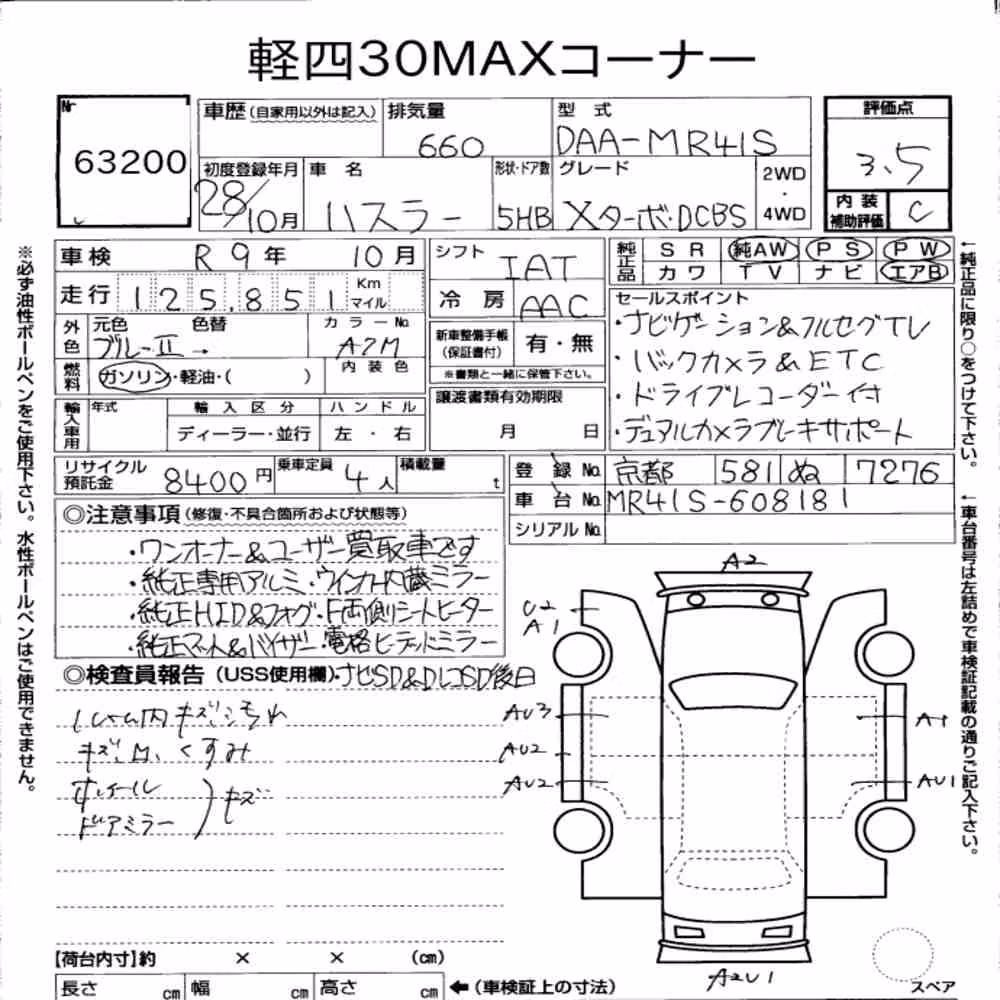 軽四30MAXコーナー
Nr
63200
車歴(自家用以外は記入)
排気量
660
型式
DAA-MR41S
評価点
3.5
初度登録年月
28/10月
車名
ハスラー
形状・ドア数
5HB
グレード
Xターボ・DCBS
2WD
・
4WD
内装
補助評価
C
車検 R9年 10月
シフト
IAT
冷房
AAC
純正品
SR 純AW PS PW
カワ TV ナビ エアB
走行 125,851 Km マイル
外色
元色 色替
ブルーII→
カラーNo
A7M
内装色
燃料
ガソリン・軽油・( )
新車整備手帳
(保証書付)
有・無
※書類と一緒に保管下さい。
セールスポイント
・ナビゲーション&フルセグTV
・バックカメラ&ETC
・ドライブレコーダー付
・デュアルカメラブレーキサポート
輸入車用
年式
輸入区分
ディーラー・並行
ハンドル
左・右
譲渡書類有効期限
月 日
リサイクル
預託金
8400円
乗車定員
4人
積載量
t
登録No. 京都 581 ぬ 7276
車台No. MR41S-608181
シリアルNo.
◎注意事項(修復・不具合箇所および状態等)
・ワンオーナー&ユーザー買取車です
・純正専用アルミ・ウインカー内蔵ミラー
・純正HID&フォグ・F両側シートヒーター
・純正マット&バイザー・電格ヒーテッドミラー
◎検査員報告(USS使用欄)・ナビSD&DレコSD後日
シャム内キズ、汚れ
キズ、凹、くすみ
ホイール
ドアミラー
)キズ
A2
U2
A1
AU3
AU2
AU2
A1
AU1
A2U1
スペア
【荷台内寸】約 × × (cm)
長さ cm 幅 cm 高さ cm
←(車検証上の寸法)
※必ず油性ボールペンをご使用下さい。水性ボールペンはご使用できません。
←純正品に限り○をつけて下さい。
←車台番号は左詰めで車検証記載の通りご記入下さい。